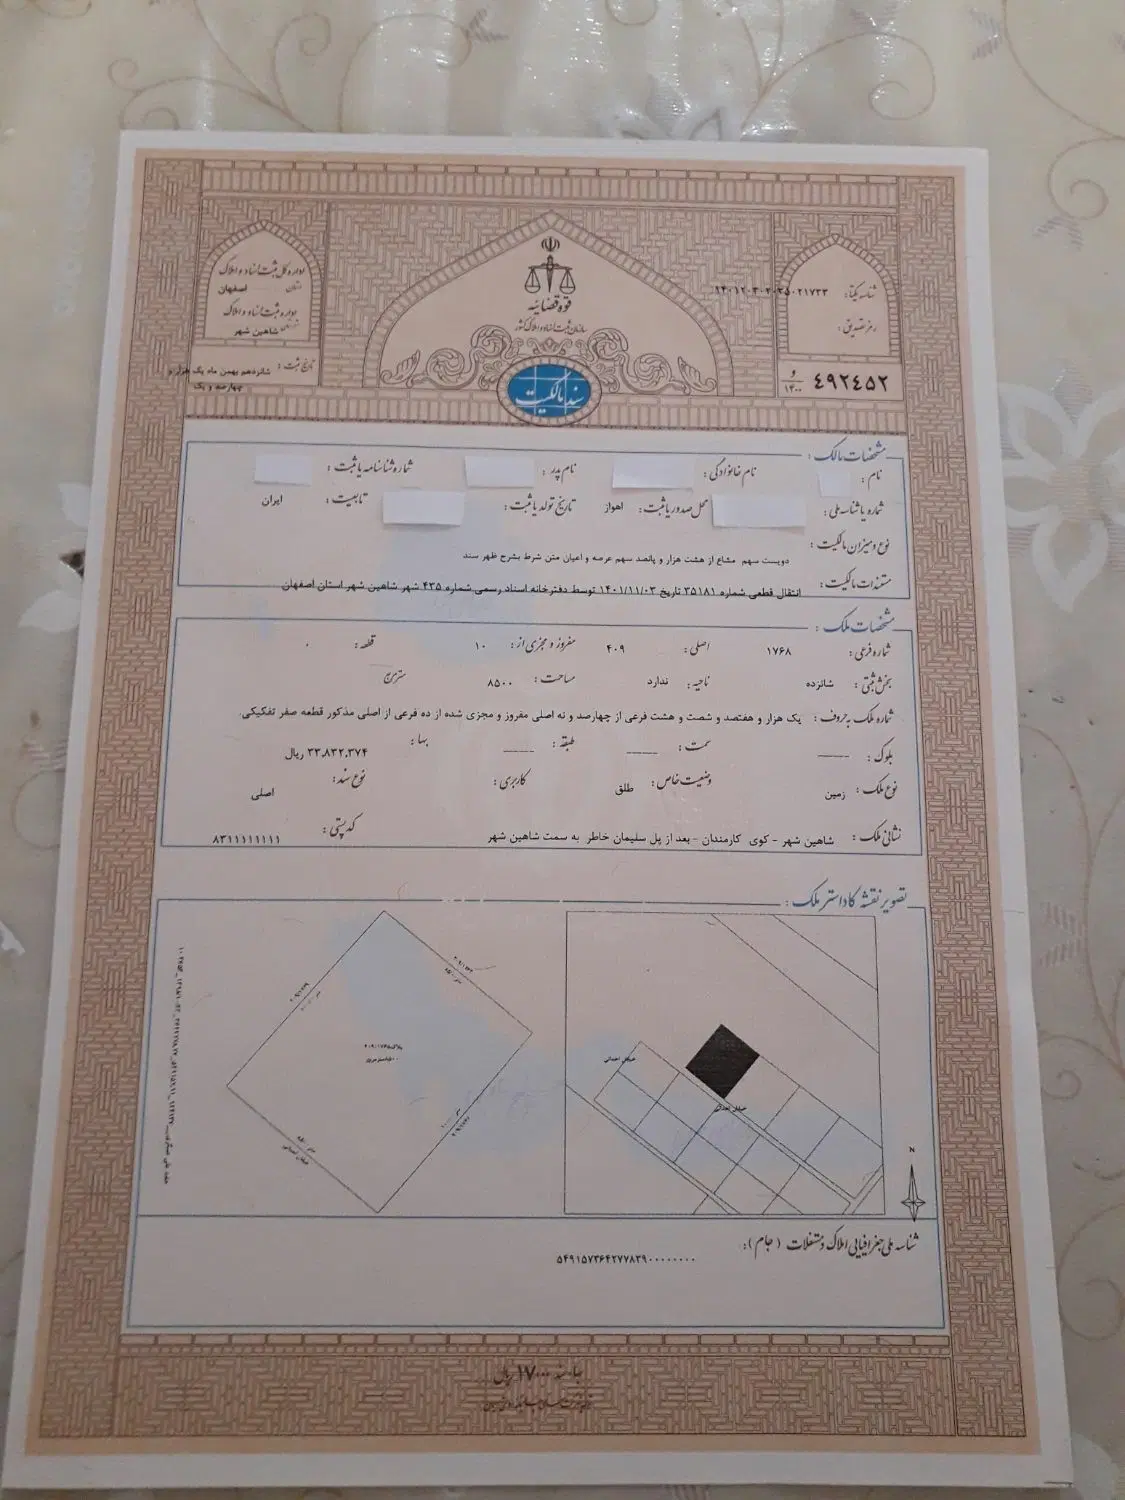 قوه قضائیه
سازمان ثبت اسناد و املاک کشور
سند مالکیت
اداره کل ثبت اسناد و املاک
استان اصفهان
اداره ثبت اسناد و املاک
شهرستان شاهین شهر
تاریخ ثبت : شانزدهم بهمن ماه یک هزار و
چهارصد و یک
شناسه یکتا :
رمز تصدیق :
۴۹۲۴۵۲ و ۱۴۰۰
مشخصات مالک :
نام : نام خانوادگی : نام پدر : شماره شناسنامه یا ثبت :
شماره یا شناسه ملی : محل صدور یا ثبت : اهواز تاریخ تولد یا ثبت : تابعیت : ایران
نوع و میزان مالکیت :
دویست سهم مشاع از هشت هزار و پانصد سهم عرصه و اعیان متن شرط بشرح ظهر سند
مستندات مالکیت : انتقال قطعی شماره ۳۵۱۸۱ تاریخ ۱۴۰۱/۱۱/۰۳ توسط دفترخانه اسناد رسمی شماره ۴۳۵ شهر شاهین شهر استان اصفهان
مشخصات ملک :
شماره فرعی : ۱۷۶۸ اصلی : ۴۰۹ مفروز و مجزی از : ۱۰ قطعه : ۰
بخش ثبتی : شانزده ناحیه : ندارد مساحت : ۸۵۰۰ مترمربع
شماره ملک به حروف : یک هزار و هفتصد و شصت و هشت فرعی از چهارصد و نه اصلی مفروز و مجزی شده از ده فرعی از اصلی مذکور قطعه صفر تفکیکی.
بلوک : سمت : طبقه : بها : ۳۳,۸۳۲,۳۷۴ ریال
نوع ملک : زمین وضعیت خاص : طلق کاربری : نوع سند : اصلی
نشانی ملک : شاهین شهر - کوی کارمندان - بعد از پل سلیمان خاطر به سمت شاهین شهر کد پستی : ۸۳۱۱۱۱۱۱۱۱
تصویر نقشه کاداستر ملک :
خیابان احداثی
خیابان احداثی
خیابان احداثی
N
شناسه ملی جغرافیایی املاک و مستغلات (جام) :
۵۴۹۱۵۷۳۶۴۲۷۷۸۳۹۰۰۰۰۰۰۰۰
بها، سند ۱۷۰۰۰۰ ریال